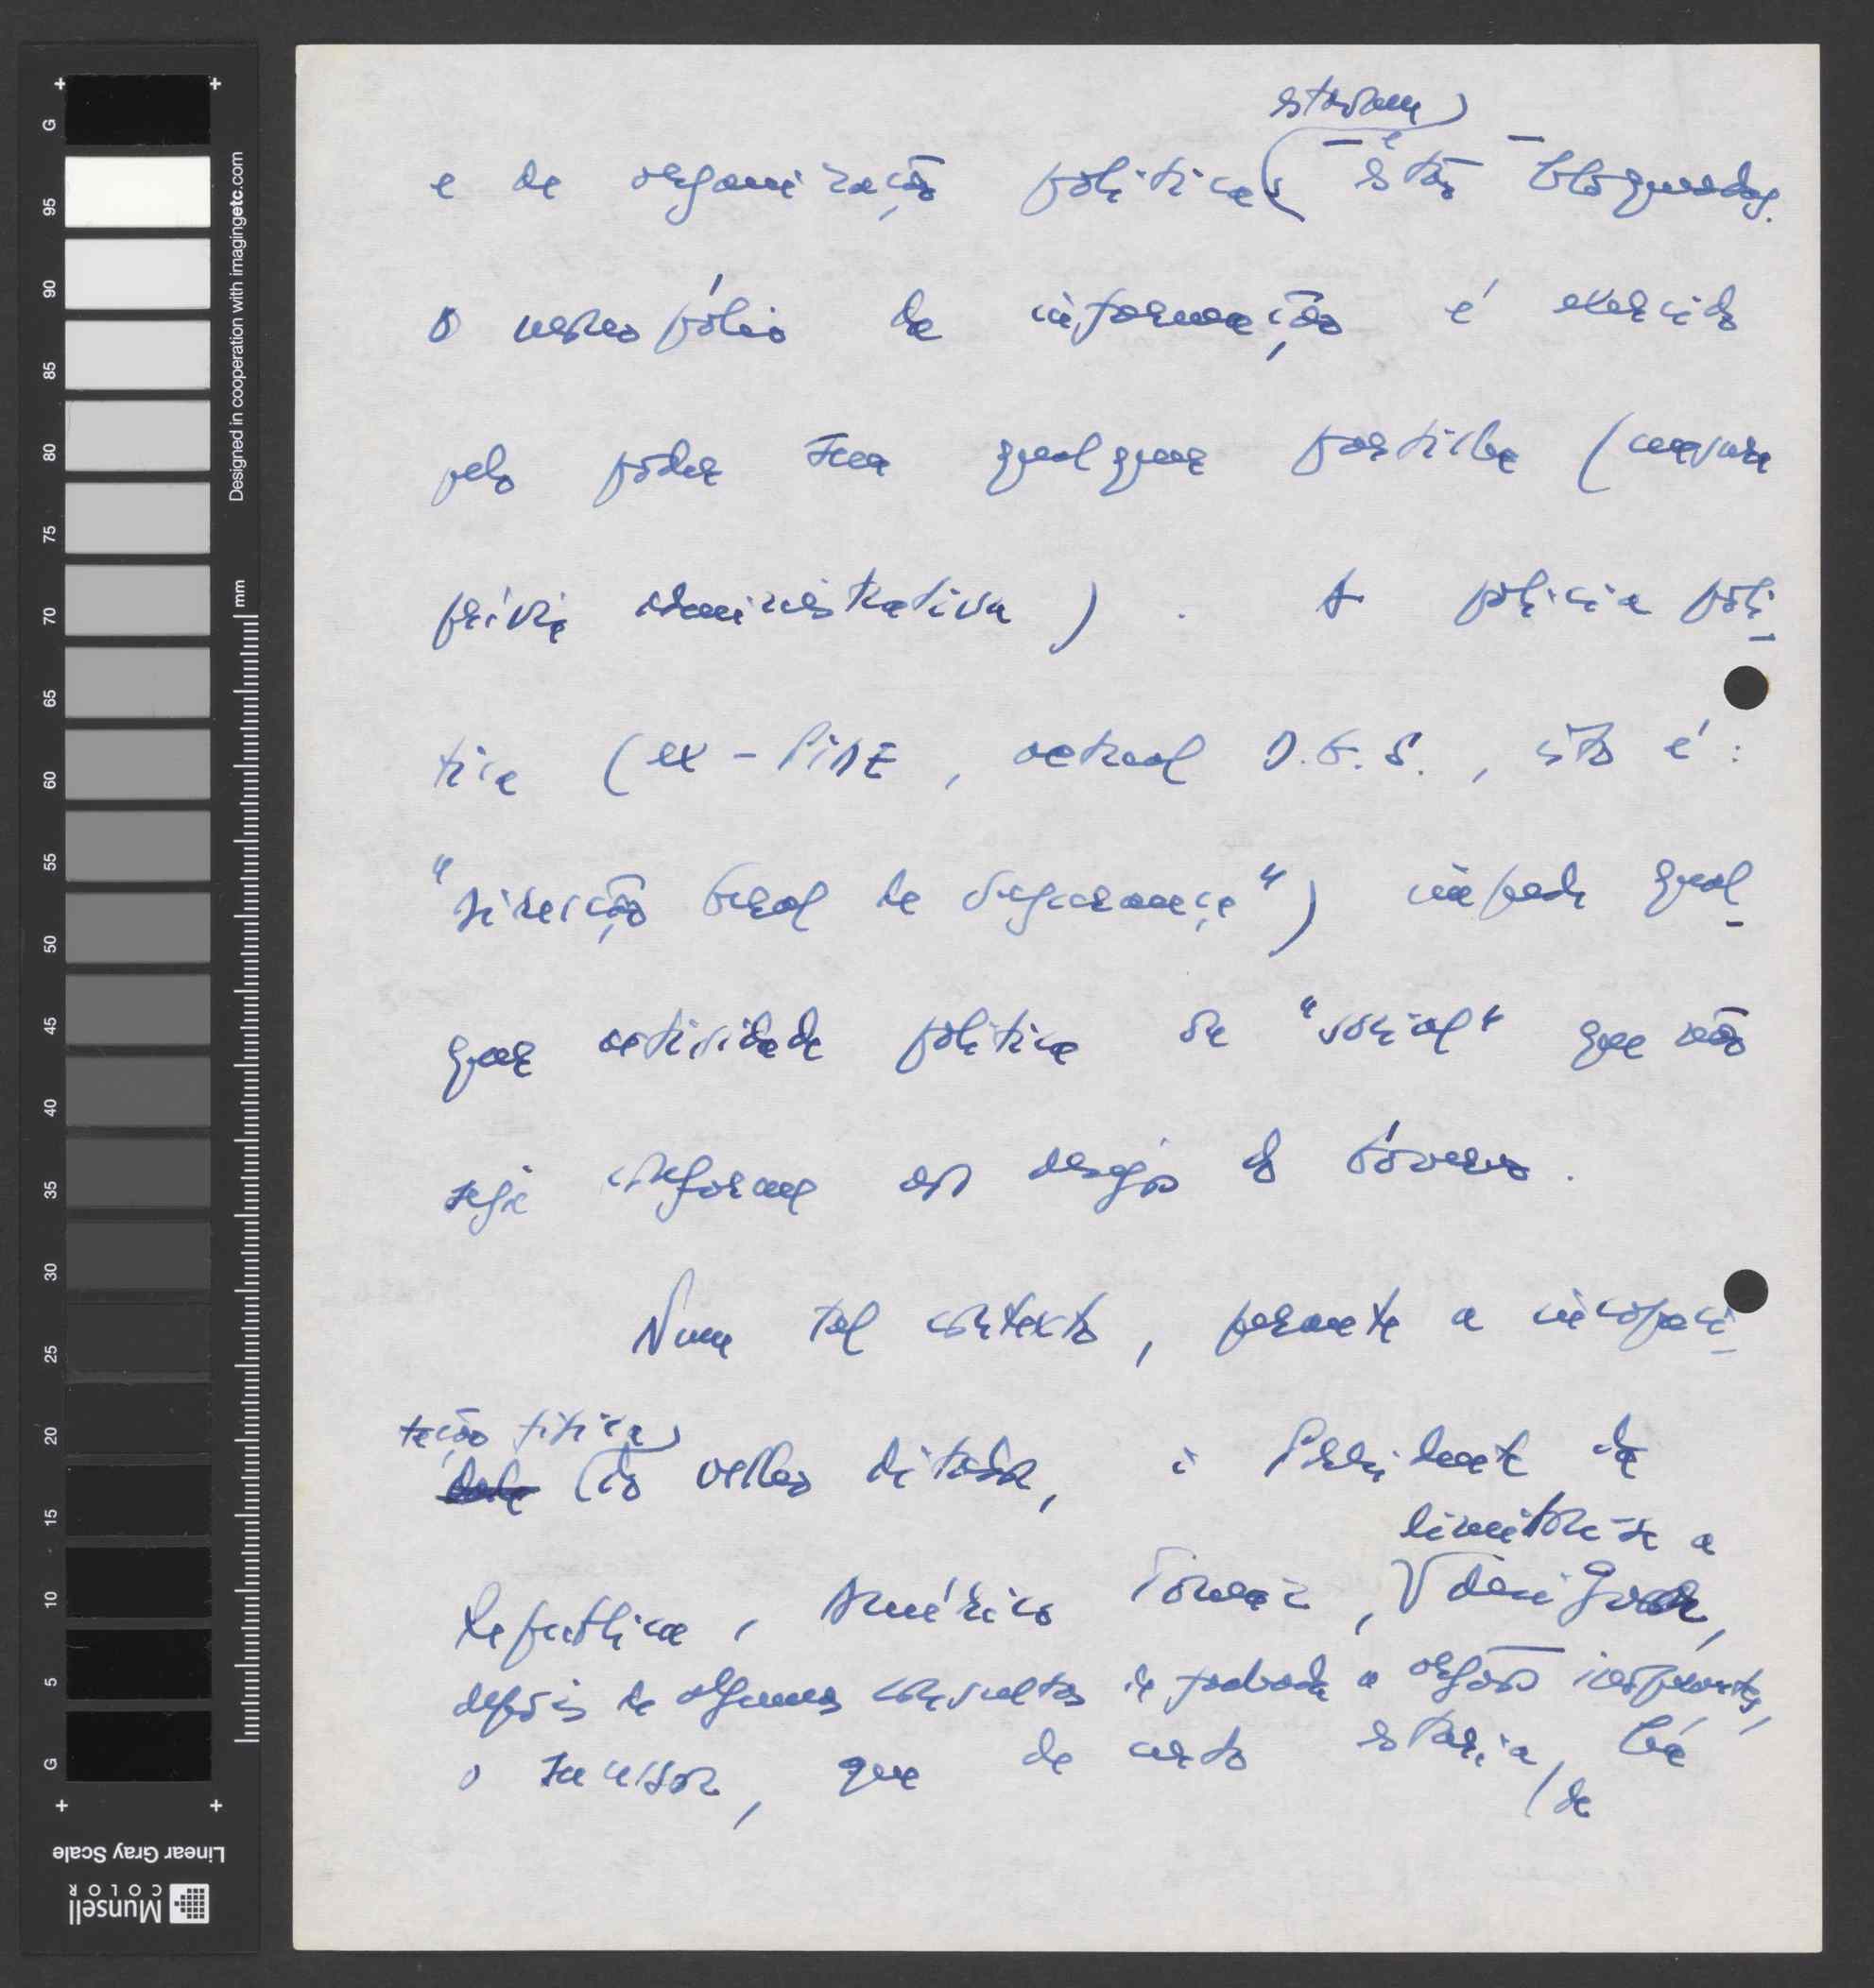 estavam
e de organização política ( – e estão – bloqueados.
O monopólio da informação é exercido
pelo poder sem qualquer partilha (censura
prévia administrativa). A polícia polí-
tica (ex-PIDE, actual D.G.S., isto é:
"Direcção Geral de Segurança") impede qual-
quer actividade política ou "social" que não
seja conforme aos desejos do Govêrno.
Num tal contexto, perante a incapaci-
tação física
do velho ditador, o Presidente da
limitar-se a
República, Américo Tomaz, V designar,
depois de algumas consultas de fachada a orgãos inoperantes,
o sucessor, que de certo estaria há
/ de
G
95
90
85
80
75
70
65
60
55
50
45
40
35
30
25
20
15
10
5
G
mm
Designed in cooperation with imagingetc.com
Linear Gray Scale
Munsell
COLOR